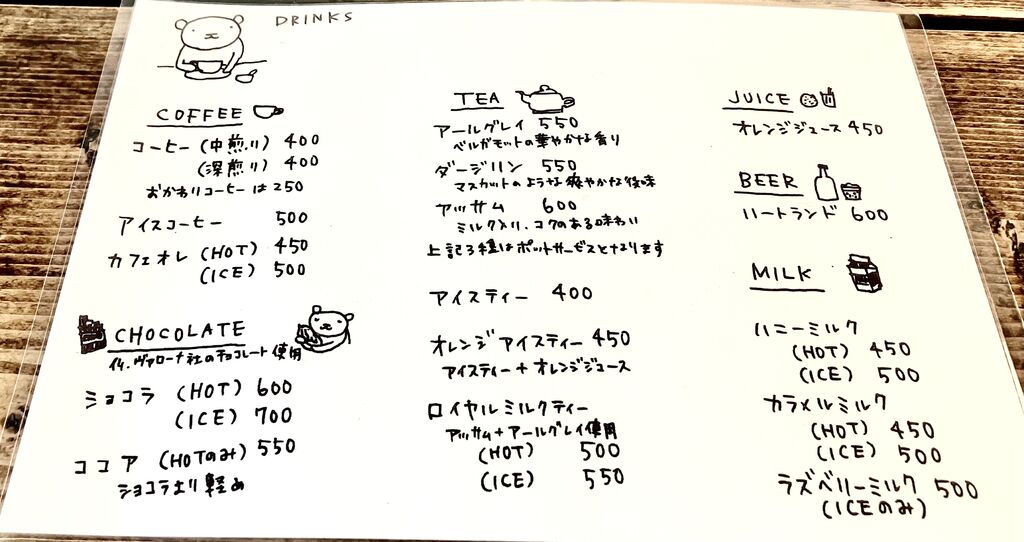 DRINKS
COFFEE
コーヒー (中煎り) 400
(深煎り) 400
おかわりコーヒーは250
アイスコーヒー 500
カフェオレ (HOT) 450
(ICE) 500
CHOCOLATE
仏.ヴァローナ社のチョコレート使用
ショコラ (HOT) 600
(ICE) 700
ココア (HOTのみ) 550
ショコラより軽め
TEA
アールグレイ 550
ベルガモットの華やかな香り
ダージリン 550
マスカットのような爽やかな後味
アッサム 600
ミルク入り.コクのある味わい
上記3種はポットサービスとなります
アイスティー 400
オレンジアイスティー 450
アイスティー+オレンジジュース
ロイヤルミルクティー
アッサム+アールグレイ使用
(HOT) 500
(ICE) 550
JUICE
オレンジジュース 450
BEER
ハートランド 600
MILK
ハニーミルク
(HOT) 450
(ICE) 500
カラメルミルク
(HOT) 450
(ICE) 500
ラズベリーミルク 500
(ICEのみ)